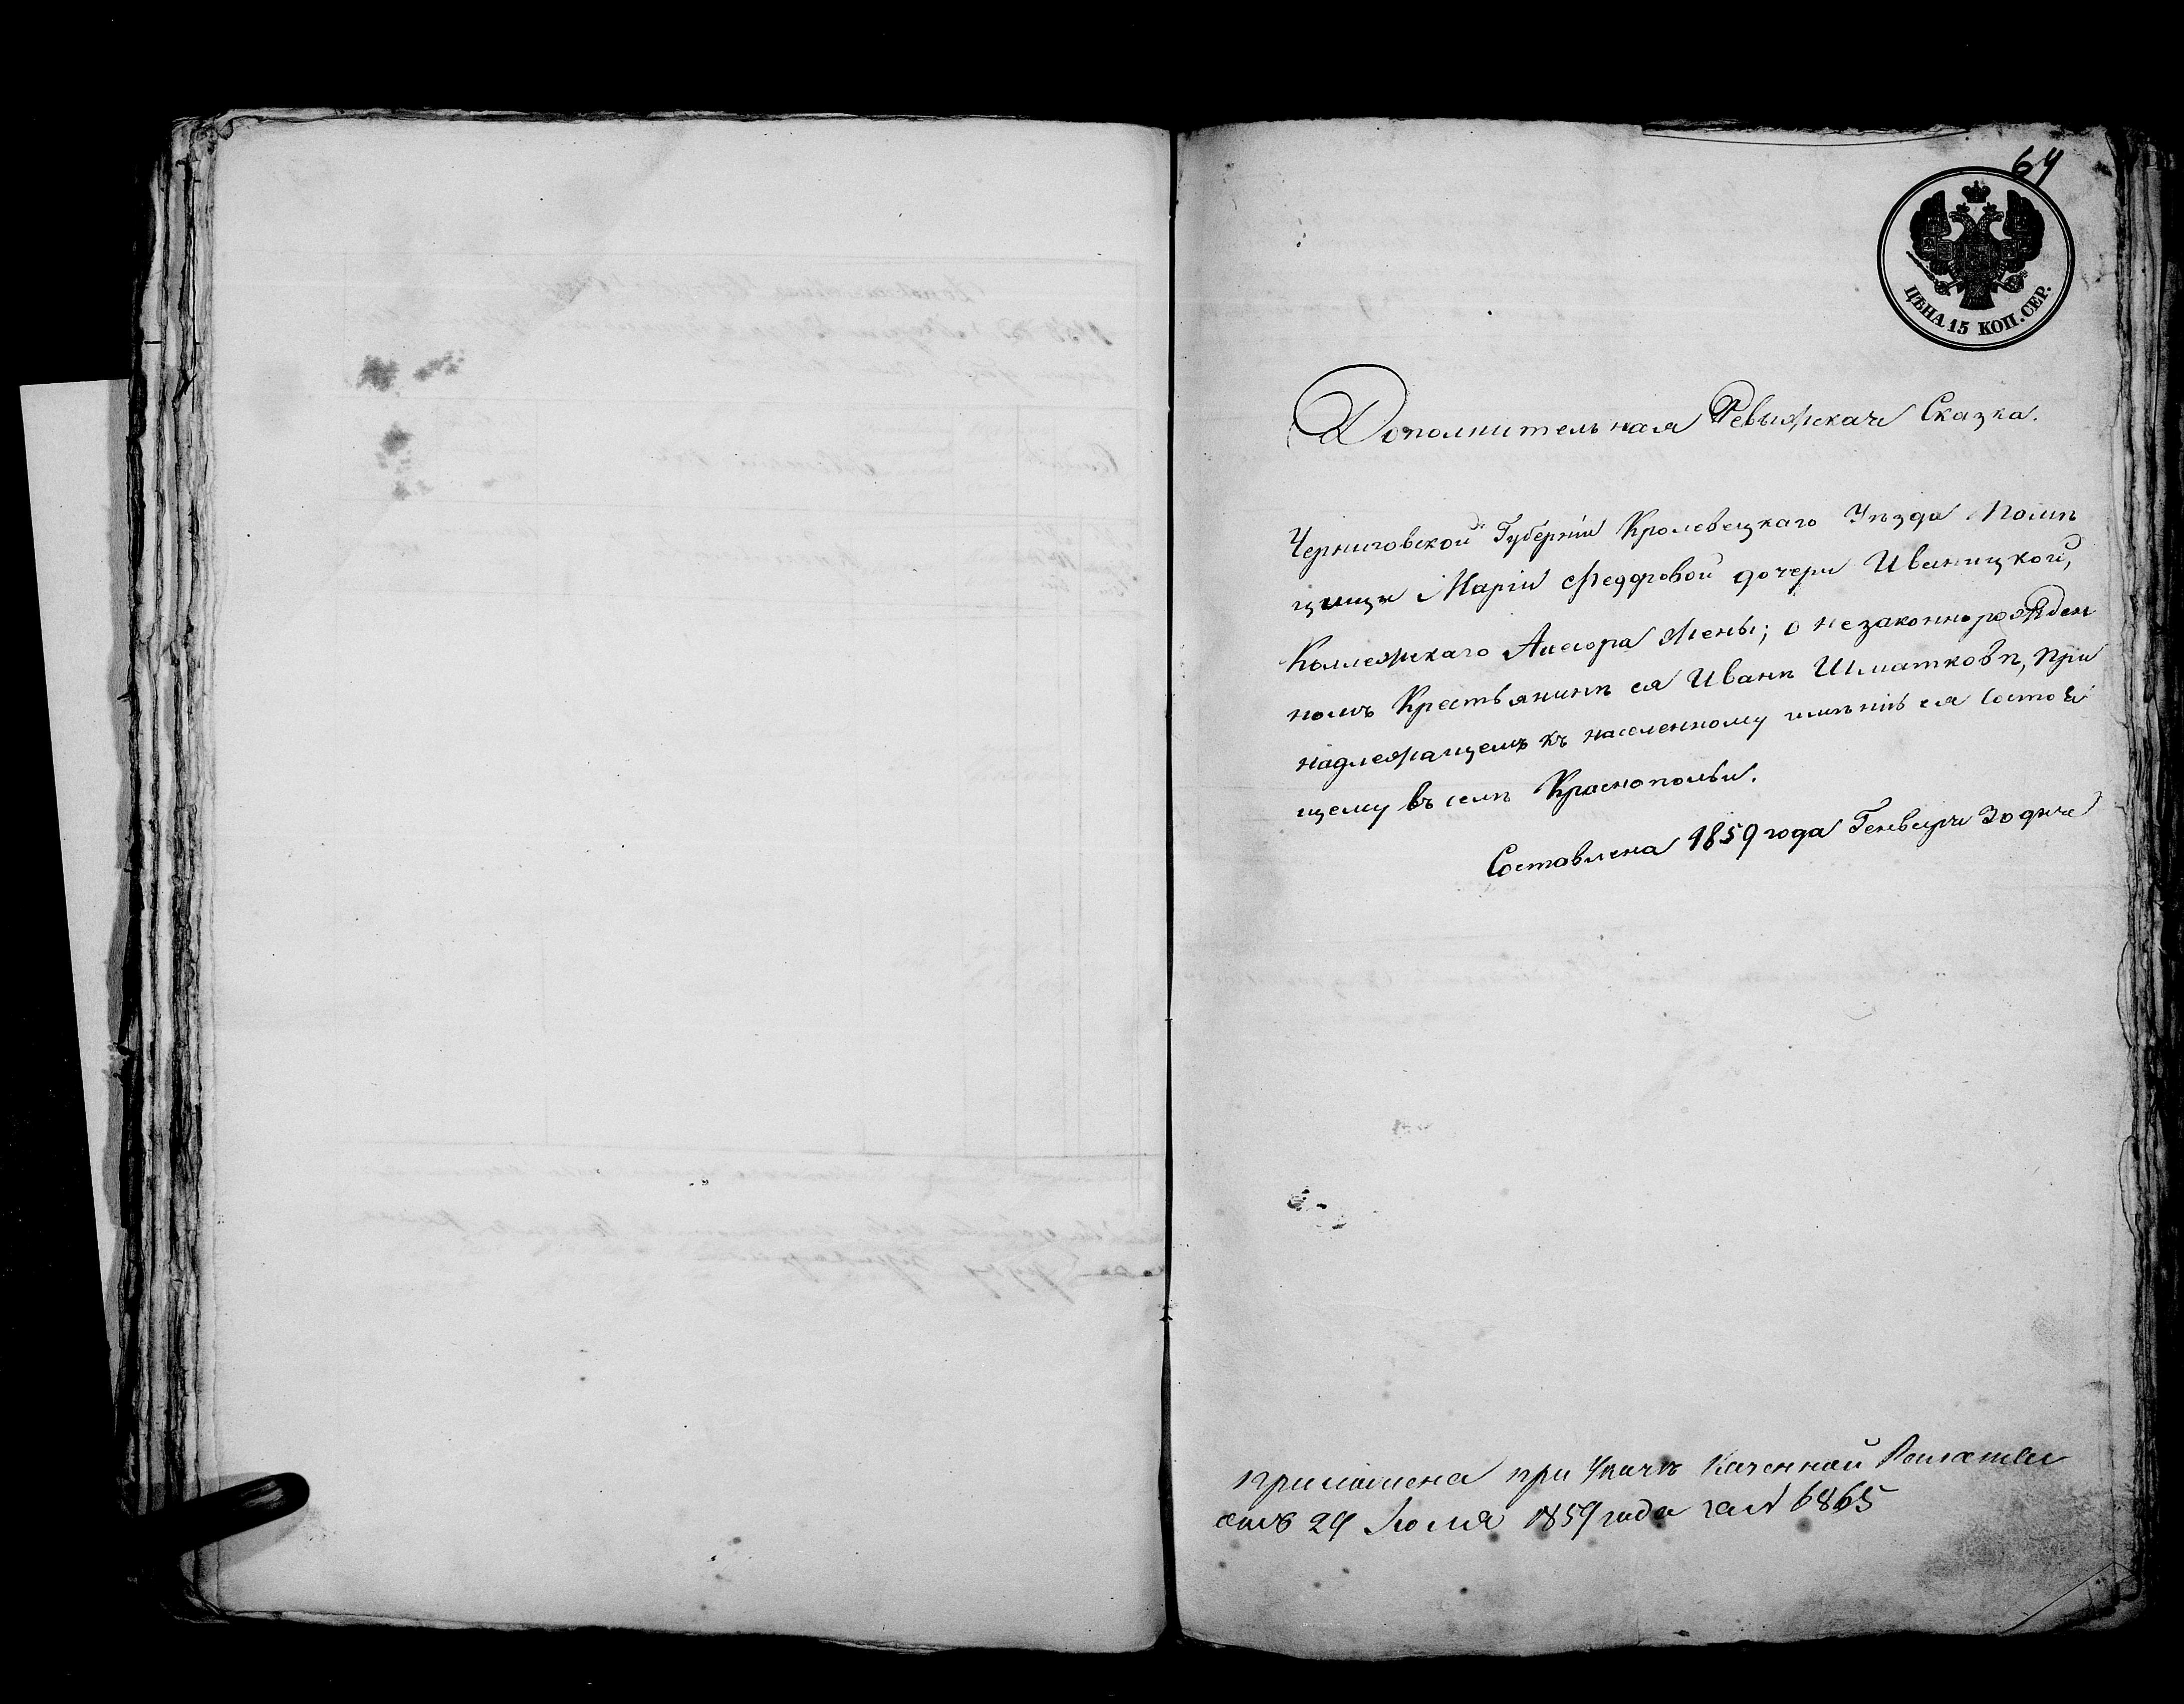 64
ЦѢНА 15 КОП. СЕР.
Дополнительная Ревижская Сказка.
Черниговской Губерніи Кролевецкаго Уѣзда Помѣ
щицы Маріи Федоровой дочери Иваницкой,
Коллежскаго Ассесора жены; о незаконнорожден
номъ Крестьянинѣ ея Иванѣ Шматковѣ, при
надлежащемъ къ населенному имѣнію ея состоя
щему въ селѣ Краснопольи.
Составлена 1859 года Генваря 30 дня
при Указѣ Казенной Палаты
29 Июля 1859 года за № 6865